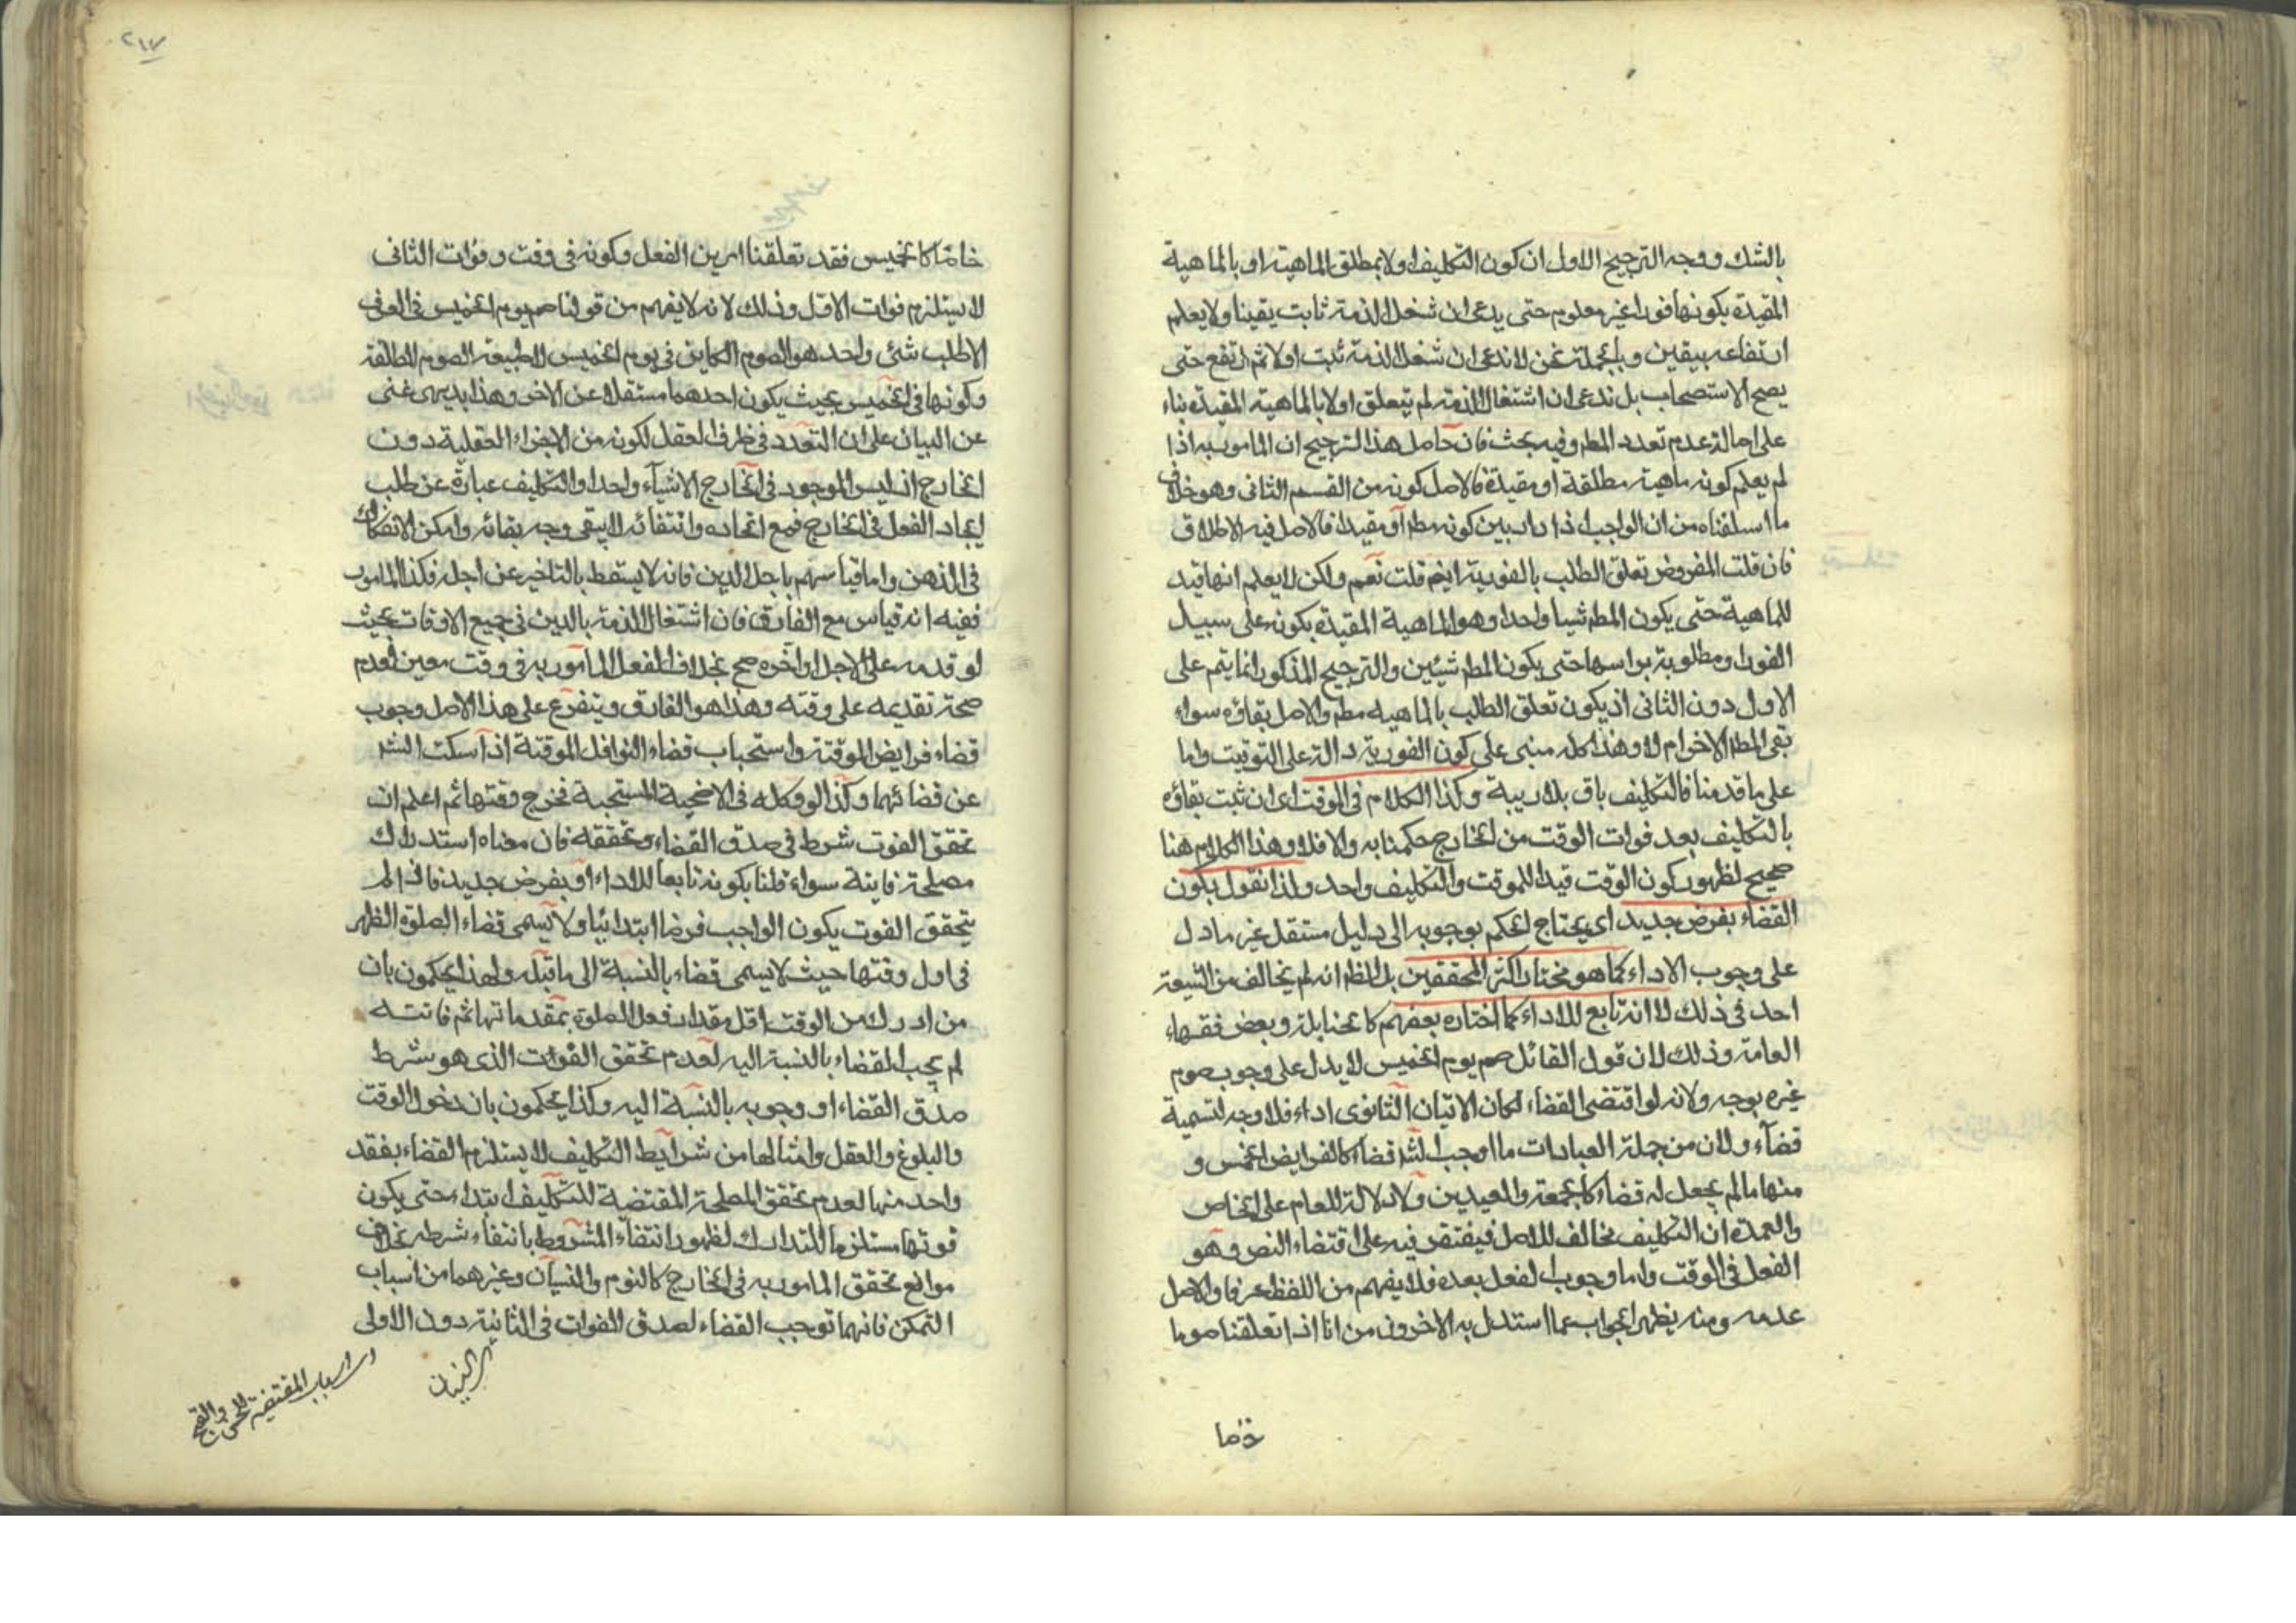 بالشك ووجه الترجيح الاول ان كون التكليف اولا بمطلق الماهية او بالماهية
المقيدة بكونها فورا غير معلوم حتى يدعى ان شغل الذمة ثابت يقينا ولا يعلم
ارتفاعه بيقين وبالجملة نحن لا ندعى ان شغل الذمة ثبت اولا ثم ارتفع حتى
يصح الاستصحاب بل ندعى ان اشتغال الذمة لم يتعلق اولا بالماهية المقيدة بناء
على اصالة عدم تعدد المط وفيه بحث فان حاصل هذا الترجيح ان المامور به اذا
لم يعلم كونه ماهية مطلقة او مقيدة فالاصل كونه من القسم الثانى وهو خلاف
ما اسلفناه من ان الواجب اذا دار بين كونه مط او مقيدا فالاصل فيه الاطلاق
فان قلت المفروض تعلق الطلب بالفورية ايضا قلت نعم ولكن لا يعلم انها قيد
للماهية حتى يكون المط شيئا واحدا وهو الماهية المقيدة بكونه على سبيل
الفور او مطلوبة براسها حتى يكون المط شيئين والترجيح المذكور انما يتم على
الاول دون الثانى اذ يكون تعلق الطلب بالماهية مط والاصل بقاؤه سواء
بقى المط الاخر ام لا وهذا كله مبنى على كون الفورية دالة على التوقيت واما
على ما قدمنا فالتكليف باق بلا ريبة وكذا الكلام فى الموقت اى ان ثبت بقاؤه
بالتكليف بعد فوات الوقت من الخارج حكمنا به والا فلا وهذا الكلام هنا
صحيح لظهور كون الوقت قيدا للموقت والتكليف واحد ولذا نقول بكون
القضاء بفرض جديد اى يحتاج الحكم بوجوبه الى دليل مستقل غير ما دل
على وجوب الاداء كما هو مختار اكثر المحققين بل الظ انه لم يخالف من الشيعة
احد فى ذلك لا انه تابع للاداء كما اختاره بعضهم كالحنابلة وبعض فقهاء
العامة وذلك لان قول القائل صم يوم الخميس لا يدل على وجوب صوم
غيره بوجه ولانه لو اقتضى القضاء لكان الاتيان الثانوى اداء فلا وجه لتسميه
قضآء ولان من جملة العبادات ما اوجب لشر قضاء كالفرايض الخمس و
منها ما لم يجعل له قضاء كالجمعة والعيدين ولا دلالة للعام على الخاص
والعمدة ان التكليف مخالف للاصل فيقتصر فيه على اقتضاء النص وهو
الفعل فى الوقت واما وجوب الفعل بعده فلا يفهم من اللفظ عرفا والاصل
عدمه ومنه يظهر الجواب عما استدل به الاخرون من انا اذا تعلقنا صوما
خاصّا
٢١٧
خاصّا كالخميس فقد تعلقنا امرين الفعل وكونه فى وقت وفوات الثانى
لا يستلزم فوات الاول وذلك لانه لا يفهم من قولنا صم يوم الخميس فى العرف
الا طلب شئ واحد هو الصوم الكاين فى يوم الخميس لا طبيعة الصوم المطلقة
وكونها فى الخميس بحيث يكون احدهما مستقلا عن الاخر وهذا بديهى غنى
عن البيان على ان التعدد فى ظرف العقل لكونه من الاجزاء العقلية دون
الخارج اذ ليس الموجود فى الخارج الا شيآء واحدا والتكليف عبارة عن طلب
ايجاد الفعل فى الخارج فمع اتحاده وانتفائه لا يبقى وجه بقائه وامكن الانفكاك
فى الذهن واما قياسهم باجل الدين فانه لا يسقط بالتاخير عن اجله فكذا المامور
ففيه انه قياس مع الفارق فان اشتغال الذمة بالدين فى جميع الاوقات بحيث
لو قدمه على الاجل او آخره صح بخلاف الفعل المامور به فى وقت معين لعدم
صحة تقديمه على وقته وهذا هو الفارق ويتفرع على هذا الاصل وجوب
قضاء فرايض الموقتة واستحباب قضاء النوافل الموقتة اذا سكت الشر
عن قضائهما وكذا لو وكله فى الاضحية المستحبة فخرج وقتها ثم اعلم ان
تحقق الفوت شرط فى صدق القضاء وتحققه فان معناه استدراك
مصلحة فايتة سواء قلنا بكونه تابعا للاداء او بفرض جديد فاذا لم
يتحقق الفوت يكون الواجب فرضا ابتدائيا ولا يسمى قضاء الصلوة الظهر
فى اول وقتها حيث لا يسمى قضاء بالنسبة الى ما قبله ولهذا يحكمون بان
من ادرك من الوقت اقل مقدار فعل الصلوة بمقدماتها ثم فاتته
لم يجب القضاء بالنسبة اليه لعدم تحقق الفوات الذى هو شرط
صدق القضاء او وجوبه بالنسبة اليه وكذا يحكمون بان دخول الوقت
والبلوغ والعقل وامثالها من شرايط التكليف لا يستلزم القضاء بفقد
واحد منها لعدم تحقق المصلحة المقتضية للتكليف ابتداء حتى يكون
فوتها مستلزما للتدارك لظهور انتفاء المشروط بانتفاء شرطه بخلاف
موانع تحقق المامور به فى الخارج كالنوم والنسيان وغيرهما من اسباب
التمكن فانهما توجب القضاء لصدق الفوات فى الثانية دون الاولى